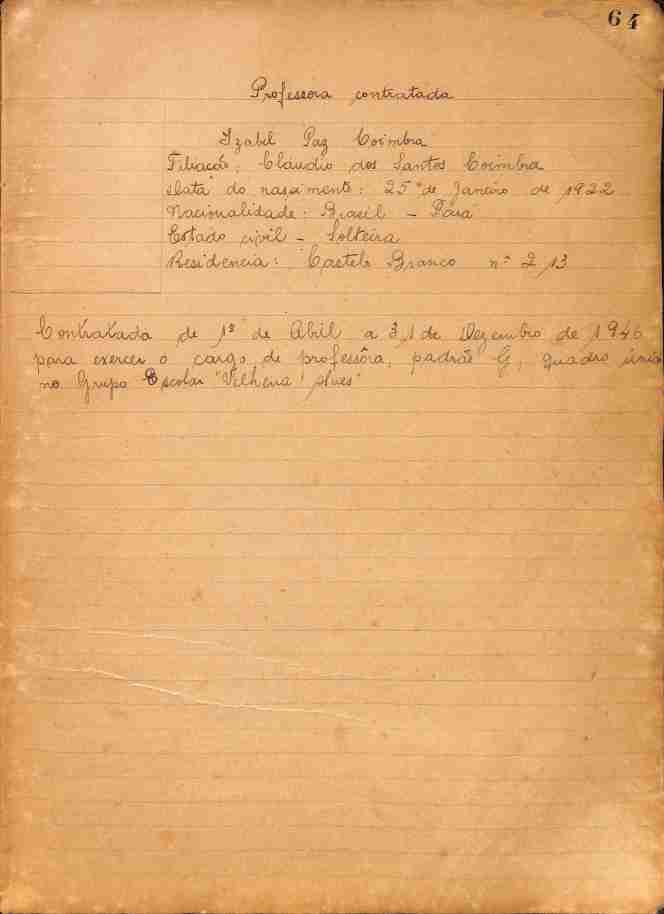 64
Professora contratada
Izabel Paz Coimbra
Filiação: Cláudio dos Santos Coimbra
Data do nascimento: 25 de Janeiro de 1922
Nacionalidade: Brasil - Pará
Estado civil - Solteira
Residencia: Castelo Branco nº 213
Contratada de 1º de Abril a 31 de Dezembro de 1946
para exercer o cargo de professôra, padrão G, quadro único
no Grupo Escolar "Vilhena Alves"